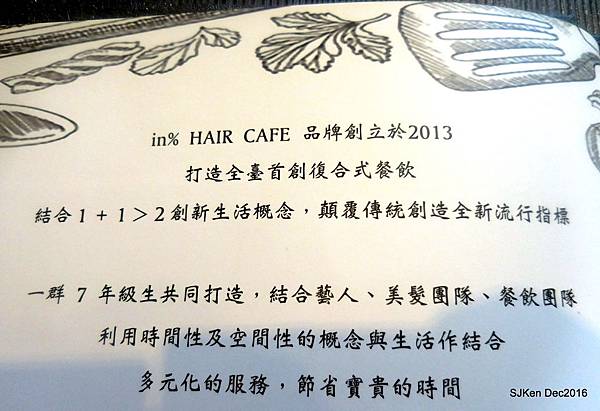 in% HAIR CAFE 品牌創立於2013
打造全臺首創復合式餐飲
結合 1 + 1 > 2 創新生活概念，顛覆傳統創造全新流行指標
一群 7 年級生共同打造，結合藝人、美髮團隊、餐飲團隊
利用時間性及空間性的概念與生活作結合
多元化的服務，節省寶貴的時間
SJKen Dec2016